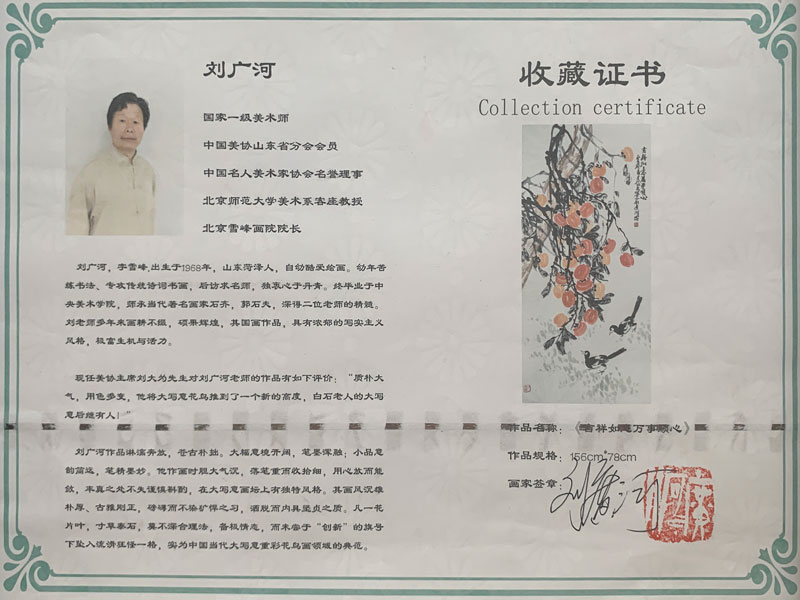 刘广河
国家一级美术师
中国美协山东省分会会员
中国名人美术家协会名誉理事
北京师范大学美术系客座教授
北京雪峰画院院长
刘广河，李雪峰,出生于1968年，山东菏泽人，自幼酷爱绘画。幼年苦
练书法、专攻传统诗词书画，后访求名师，独衷心于丹青。终毕业于中
央美术学院，师承当代著名画家石齐，郭石夫，深得二位老师的精髓。
刘老师多年来画耕不缀，硕果辉煌，其国画作品，具有浓郁的写实主义
风格，极富生机与活力。
现任美协主席刘大为先生对刘广河老师的作品有如下评价：“质朴大
气，用色多变，他将大写意花鸟推到了一个新的高度，白石老人的大写
意后继有人！”
刘广河作品淋漓奔放，苍古朴拙。大幅意境开阔，笔墨浑融；小品意
韵简远，笔精墨妙。他作画时胆大气沉，落笔重而收拾细，用心放而能
敛，率真之处不失谨慎斟酌，在大写意画坛上有独特风格。其画风沉雄
朴厚，古雅刚正，磅礴而不染犷悍之习，洒脱而内具坚贞之质。凡一花
片叶，寸草泰石，莫不深合理法，备极情态，而未尝于“创新”的旗号
下坠入流滑狂怪一格，实为中国当代大写意重彩花鸟画领域的典范。
收藏证书
Collection certificate
作品名称：《吉祥如意万事顺心》
作品规格：156cm*78cm
画家签章：
刘广河